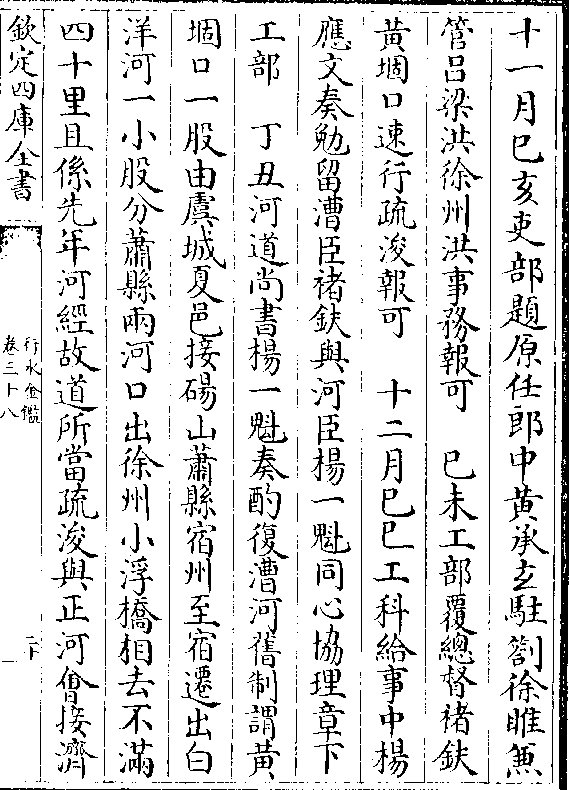 十一月已亥吏部題原任郎中黄承𤣥駐劄徐睢兼
管吕梁洪徐州洪事務報可　已未工部覆總督禇鈇
黄堌口速行疏浚報可　十二月已巳工科給事中楊
應文奏勉留漕臣禇鈇與河臣楊一魁同心協理章下
工部　丁丑河道尚書楊一魁奏酌復漕河舊制謂黄
堌口一股由虞城夏邑接碭山蕭縣宿州至宿遷出白
洋河一小股分蕭縣兩河口出徐州小浮橋相去不滿
四十里且係先年河經故道所當疏浚與正河㑹接濟
欽定四庫全書
行水金鑑
卷三十八